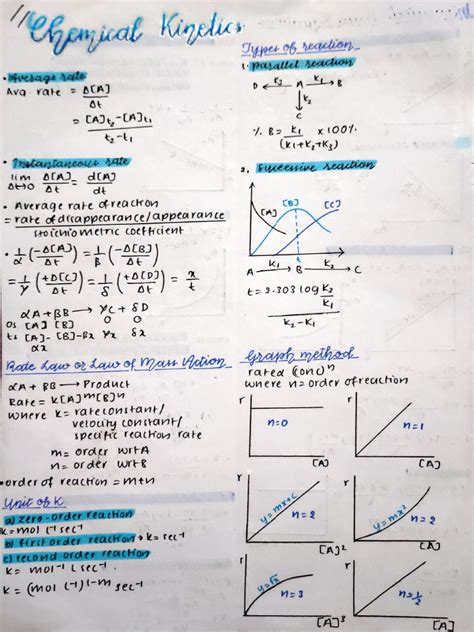 Chemical Kinetics
• Average rate
Avg rate = Δ[A]
Δt
= [A]t₂-[A]t₁
t₂-t₁
• Instantaneous rate
lim Δ[A] = d[A]
Δt→0 Δt dt
• Average rate of reaction
= rate of disappearance/appearance
stoichiometric coefficient
• 1/α (-Δ[A]/Δt) = 1/β (-Δ[B]/Δt)
= 1/γ (+Δ[C]/Δt) = 1/δ (+Δ[D]/Δt) = x/t
αA + βB → γC + δD
Os [A] [B] 0 0
ts [A]- [B]-βx γx δx
αx
Rate Law or Law of Mass Action
αA + βB → Product
Rate = k[A]ᵐ[B]ⁿ
where k = rate constant/
velocity constant/
specific reaction rate
m = order wrt A
n = order wrt B
• order of reaction = m+n
Unit of K
a) zero-order reaction
k = mol l⁻¹ sec⁻¹
b) first order reaction → k = sec⁻¹
c) second order reaction
k = mol⁻¹ L sec⁻¹
k = (mol L⁻¹)¹⁻ᵐ sec⁻¹
Types of reaction
1. parallel reaction
D ← K₂ A K₁ → B
↓ K₂
C
% B = K₁ x 100%
(K₁+K₂+K₃)
2. successive reaction
[A] [B] [C]
t
A K₁ → B K₂ → C
t = 2.303 log K₂/K₁
K₂ - K₁
Graph method
rate α (conc)ⁿ
where n = order of reaction
r n=0 [A]
r n=1 [A]
r y=mx+c n=2 [A]²
r y=mx² n=2 [A]
r y=√x n=3 [A]³
r n=1/2 [A]